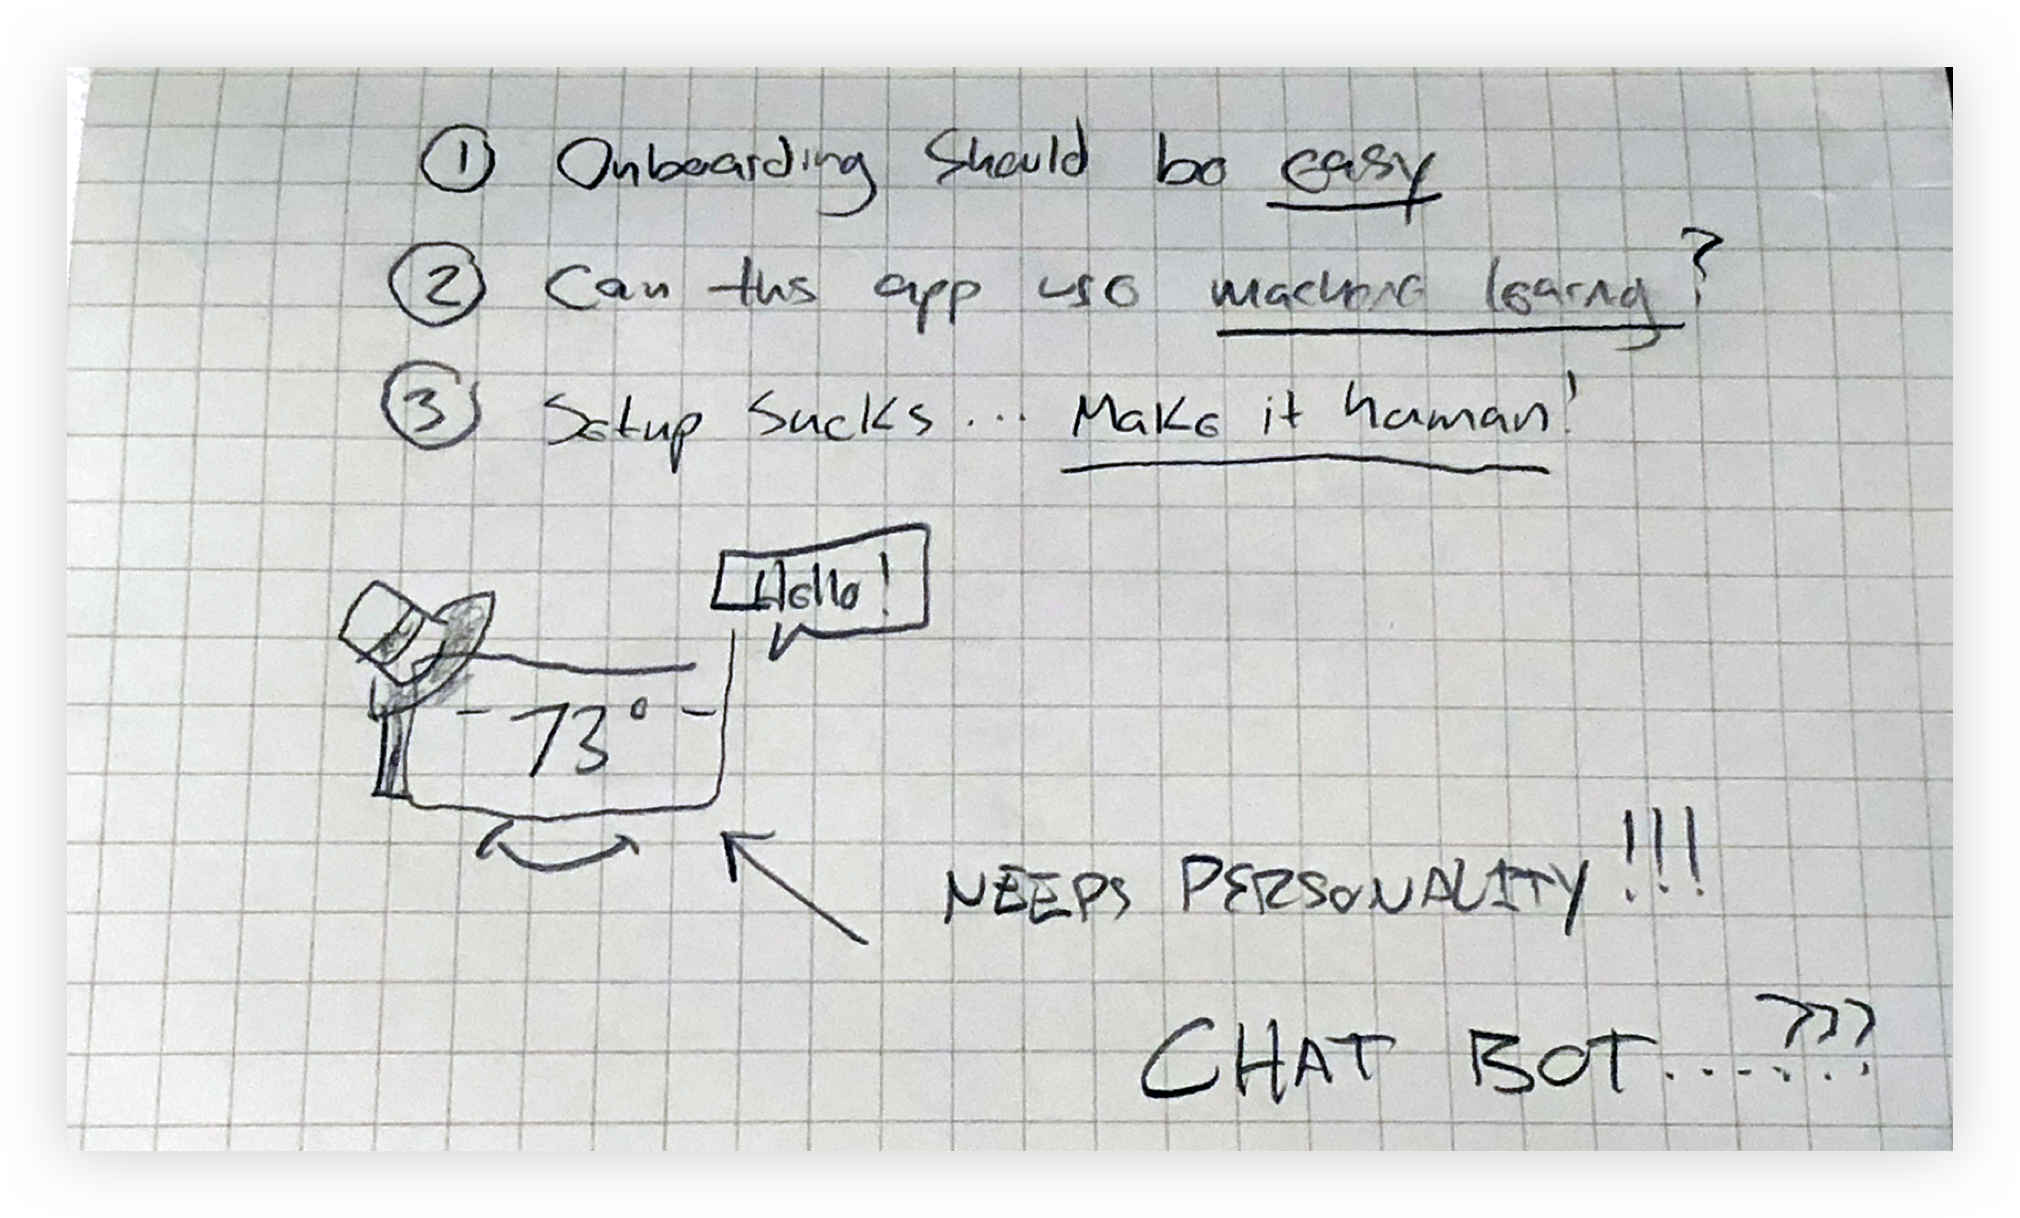 ① Onboarding Should be easy
② Can this app use machine learning?
③ Setup Sucks... Make it human!
Hello!
- 73° -
NEEDS PERSONALITY!!!
CHAT BOT.....???